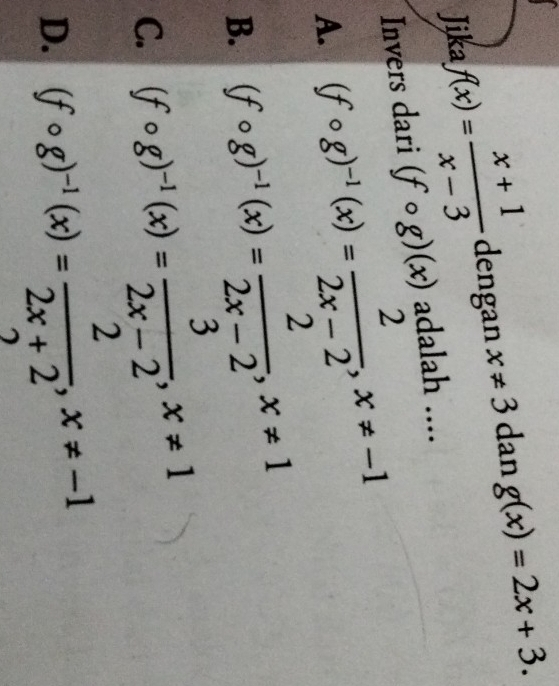 Jika f(x) = \frac{x + 1}{x - 3} dengan x ≠ 3 dan g(x) = 2x + 3.
Invers dari (f ∘ g)(x) adalah ....
A. (f ∘ g)⁻¹ (x) = \frac{2}{2x - 2}, x ≠ -1
B. (f ∘ g)⁻¹ (x) = \frac{2}{2x - 2}, x ≠ 1
C. (f ∘ g)⁻¹ (x) = \frac{3}{2x - 2}, x ≠ 1
D. (f ∘ g)⁻¹ (x) = \frac{2}{2x + 2}, x ≠ -1